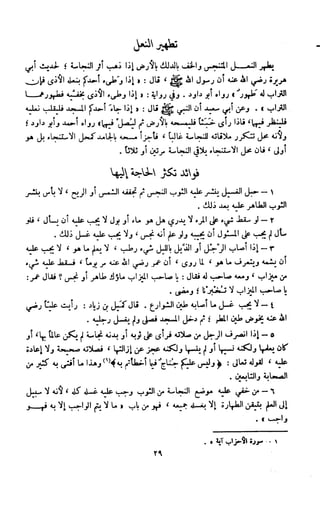 تطهير النعل
يطهر النعل المتنجس والخف بالدلك بالأرض إذا ذهب أثر النجاسة ؛ لحديث أبي
هريرة رضي الله عنه أن رسول الله ﷺ ، قال : « إذا وطىء أحدكم بنعله الأذى فإن
التراب له طهور » رواه أبو داود . وفي رواية : « إذا وطىء الأذى بخفيه فطهورهما
التراب » . وعن أبي سعيد أن النبي ﷺ قال : « إذا جاء أحدكم المسجد فليقلب نعليه
فلينظر فيهما فإذا رأى خبثاً فليمسحه بالأرض ثم ليصل فيهما » رواه أحمد وأبو داود ؛
ولأنه محل تتكرر ملاقاته للنجاسة غالباً ، فأجزأ مسحه بالجامد كمحل الاستنجاء بل هو
أولى ، فإن محل الاستنجاء يلاقي النجاسة مرتين أو ثلاثاً .
فوائد تكثر الحاجة إليها
١ – حبل الغسيل ينشر عليه الثوب النجس ثم تجففه الشمس أو الريح ، لا بأس بنشر
الثوب الطاهر عليه بعد ذلك .
٢ – لو سقط شيء على المرء لا يدري هل هو ماء أو بول لا يجب عليه أن يسأل ، فلو
سأل لم يجب على المسئول أن يجيبه ولو علم أنه نجس ، ولا يجب عليه غسل ذلك .
٣ – إذا أصاب الرجل أو الذيل بالليل شيء رطب ، لا يعلم ما هو ، لا يجب عليه
أن يشمه ويتعرف ما هو ، لما روي : أن عمر رضي الله عنه مر يوماً ، فسقط عليه شيء
من ميزاب ، ومعه صاحب له فقال : يا صاحب الميزاب ماؤك طاهر أو نجس ؟ فقال عمر :
يا صاحب الميزاب لا تخبرنا ؛ ومضى .
٤ – لا يجب غسل ما أصابه طين الشوارع . قال كميل بن زياد : رأيت علياً رضي
الله عنه يخوض طين المطر ؛ ثم دخل المسجد فصلى ولم يغسل رجليه .
٥ – إذا انصرف الرجل من صلاته فرأى على ثوبه أو بدنه نجاسة لم يكن عالماً بها ، أو
كان يعلمها ولكنه نسيها أو لم ينسها ولكنه عجز عن إزالتها ، فصلاته صحيحة ولا إعادة
عليه ، لقوله تعالى : ﴿ وليس عليكم جناح فيما أخطأتم به ﴾(١) وهذا ما أفتى به كثير من
الصحابة والتابعين .
٦ – من خفي عليه موضع النجاسة من الثوب وجب عليه غسله كله ، لأنه لا سبيل
إلى العلم بتيقن الطهارة إلا بغسله جميعه ، فهو من باب « ما لا يتم الواجب إلا به فهو
واجب » .
١ – سورة الأحزاب آية ٥ .
٢٩